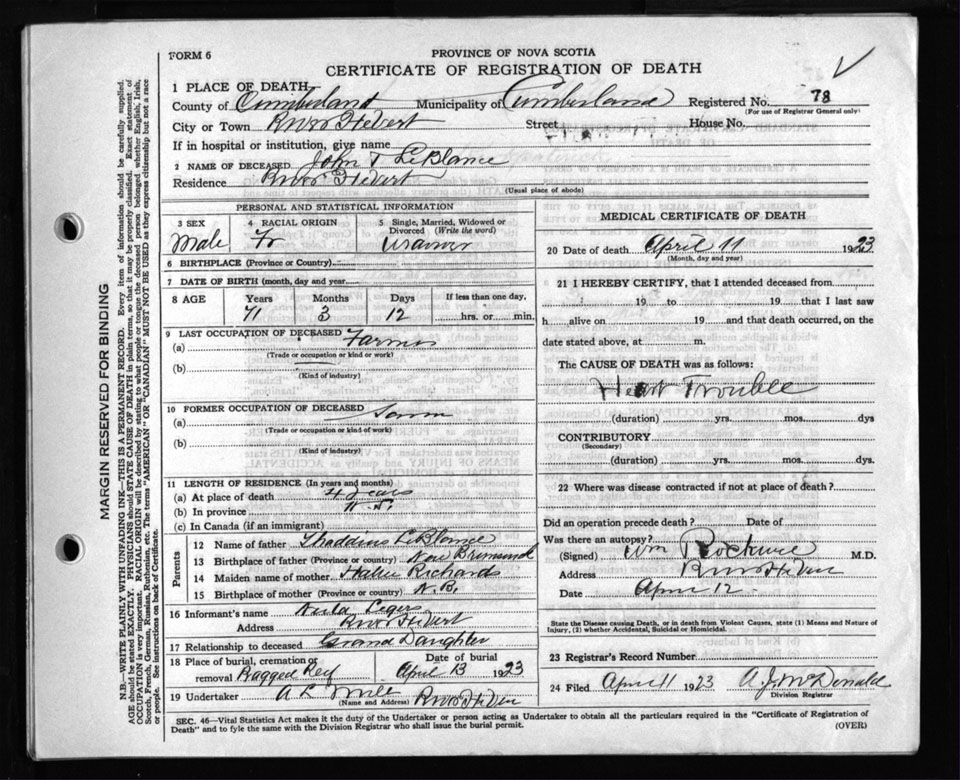 FORM 6
PROVINCE OF NOVA SCOTIA
CERTIFICATE OF REGISTRATION OF DEATH
1 PLACE OF DEATH
County of Cumberland Municipality of Cumberland Registered No. 78
(For use of Registrar General only)
City or Town River Hebert Street House No.
If in hospital or institution, give name
2 NAME OF DECEASED John T LeBlance
Residence River Hebert
(Usual place of abode)
PERSONAL AND STATISTICAL INFORMATION
3 SEX 4 RACIAL ORIGIN 5 Single, Married, Widowed or Divorced (Write the word)
Male Fr
6 BIRTHPLACE (Province or Country)
7 DATE OF BIRTH (month, day and year)
8 AGE Years Months Days If less than one day,
71 3 12 hrs. or min.
9 LAST OCCUPATION OF DECEASED
(a) Farmer
(Trade or occupation or kind or work)
(b)
(Kind of industry)
10 FORMER OCCUPATION OF DECEASED
(a)
(Trade or occupation or kind of work)
(b)
(Kind of industry)
11 LENGTH OF RESIDENCE (In years and months)
(a) At place of death 4 years
(b) In province
(c) In Canada (if an immigrant)
Parents
12 Name of father Thaddius LeBlance
13 Birthplace of father (Province or country) New Brunswick
14 Maiden name of mother Richards
15 Birthplace of mother (Province or country) N.B.
16 Informant's name
Address River Hebert
17 Relationship to deceased Grand Daughter
18 Place of burial, cremation or removal Ragged Reef Date of burial April 13 1923
19 Undertaker
(Name and Address)
MEDICAL CERTIFICATE OF DEATH
20 Date of death April 11 1923
(Month, day and year)
21 I HEREBY CERTIFY, that I attended deceased from
19 to 19 that I last saw
h alive on 19 and that death occurred, on
date stated above, at m.
The CAUSE OF DEATH was as follows:
Heart Trouble
(duration) yrs. mos. dys
CONTRIBUTORY
(Secondary)
(duration) yrs. mos. dys.
22 Where was disease contracted if not at place of death?
Did an operation precede death? Date of
Was there an autopsy?
(Signed) Wm Rockwell M.D.
Address River Hebert
Date April 12
State the Disease causing Death, or in death from Violent Causes, state (1) Means and Nature of
Injury, (2) whether Accidental, Suicidal or Homicidal.
23 Registrar's Record Number
24 Filed April 11 1923 A. J. McDonald
Division Registrar
SEC. 46—Vital Statistics Act makes it the duty of the Undertaker or person acting as Undertaker to obtain all the particulars required in the "Certificate of Registration of
Death" and to fyle the same with the Division Registrar who shall issue the burial permit. (OVER)
MARGIN RESERVED FOR BINDING
N.B.—WRITE PLAINLY WITH UNFADING INK—THIS IS A PERMANENT RECORD. Every item of information should be carefully supplied.
AGE should be stated EXACTLY. PHYSICIANS should STATE CAUSE OF DEATH in plain terms, so that it may be properly classified. Exact statement of
OCCUPATION is very important. RACIAL ORIGIN will be described by stating to what people or tongue the deceased person belonged whether English, Irish,
Scotch, French, German, Russian, Ruthenian, etc. The terms "AMERICAN" OR "CANADIAN" MUST NOT BE USED as they express citizenship but not a race
or people. See instructions on back of Certificate.